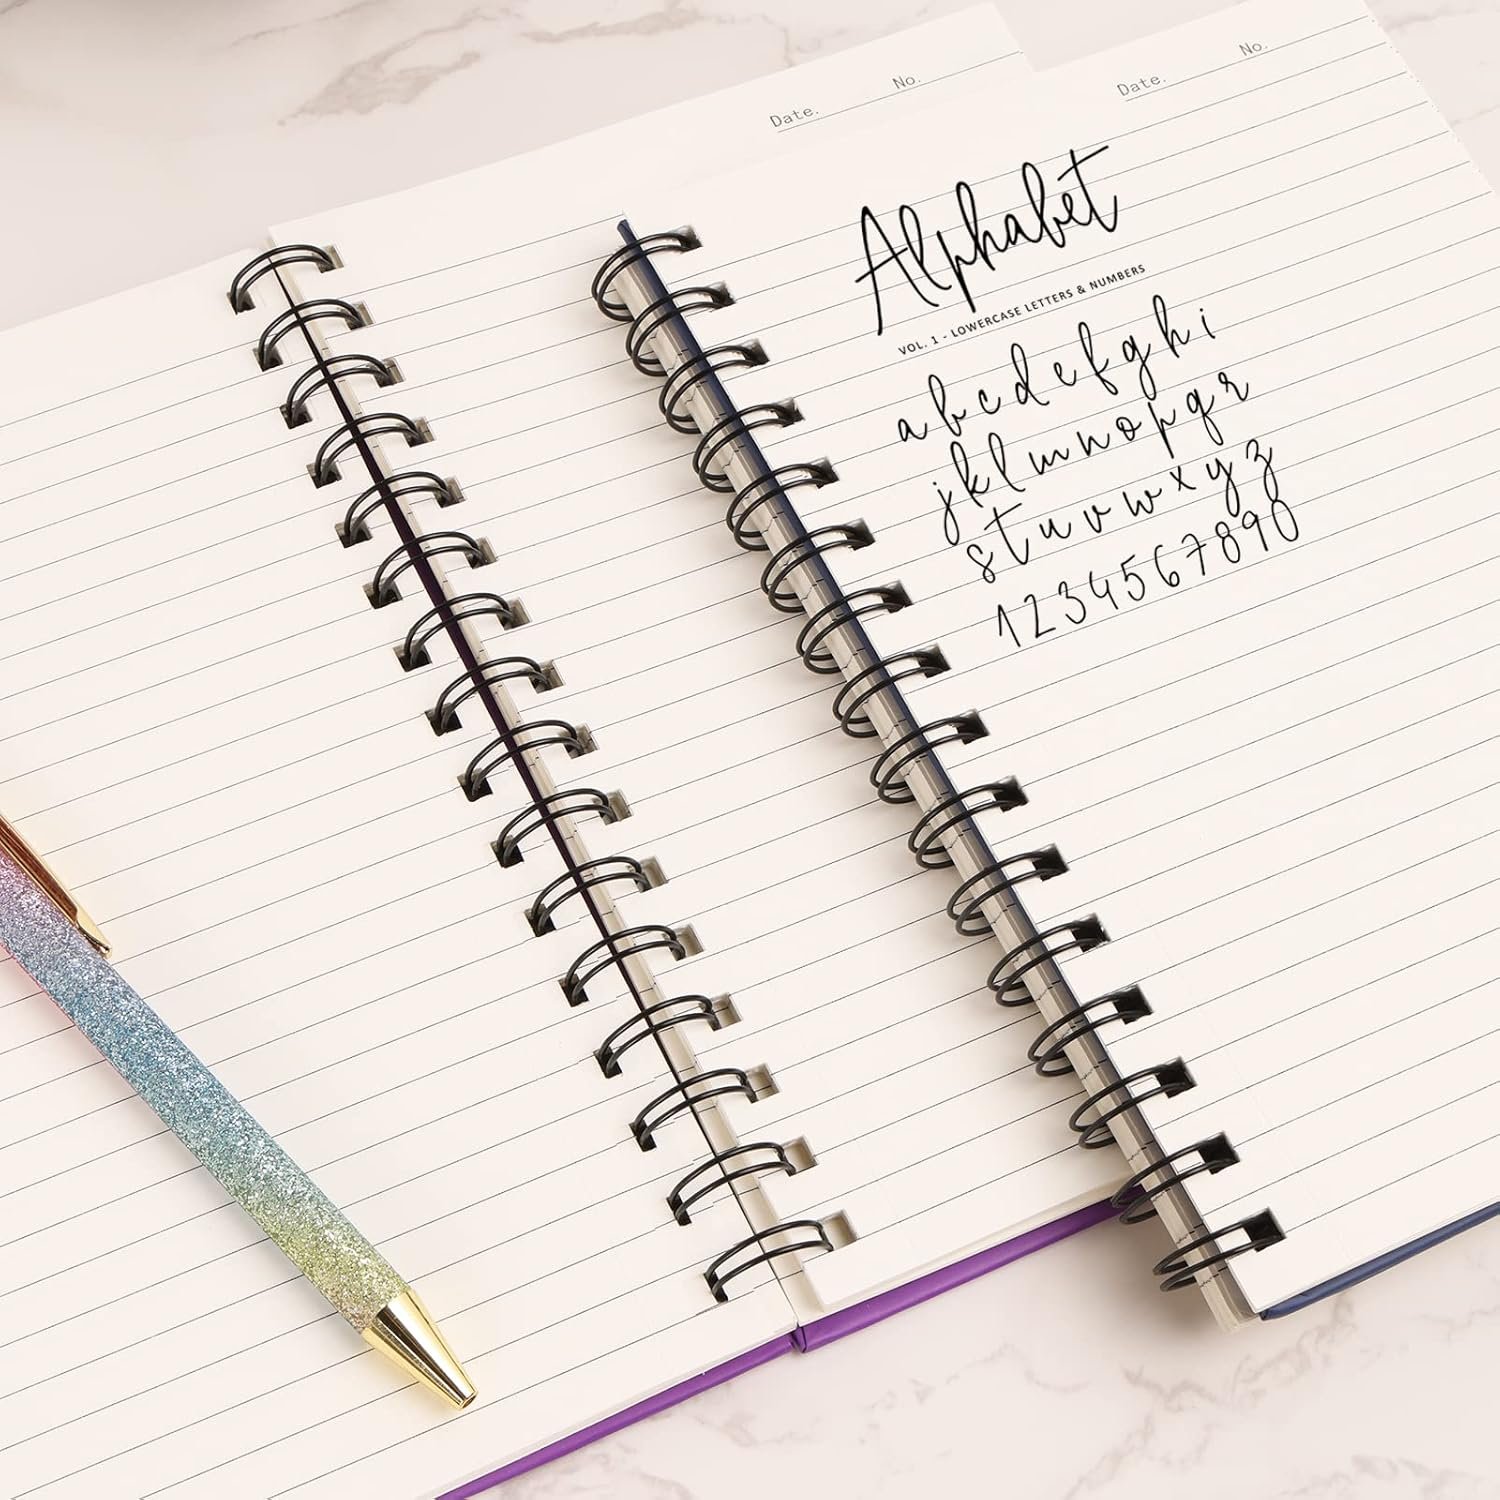 Date. No.
Date. No.
Alphabet
VOL. 1 - LOWERCASE LETTERS & NUMBERS
a b c d e f g h i
j k l m n o p q r
s t u v w x y z
1 2 3 4 5 6 7 8 9 0